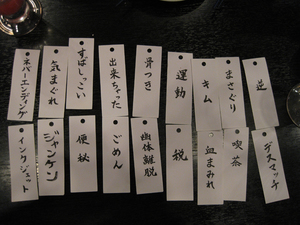 ネバーエンディング
気まぐれ
すばしっこい
出来ちゃった
骨つき
運動
キム
まさぐり
逆
インクジェット
ジャンケン
便秘
ごめん
幽体離脱
税
血まみれ
喫茶
デスマッチ